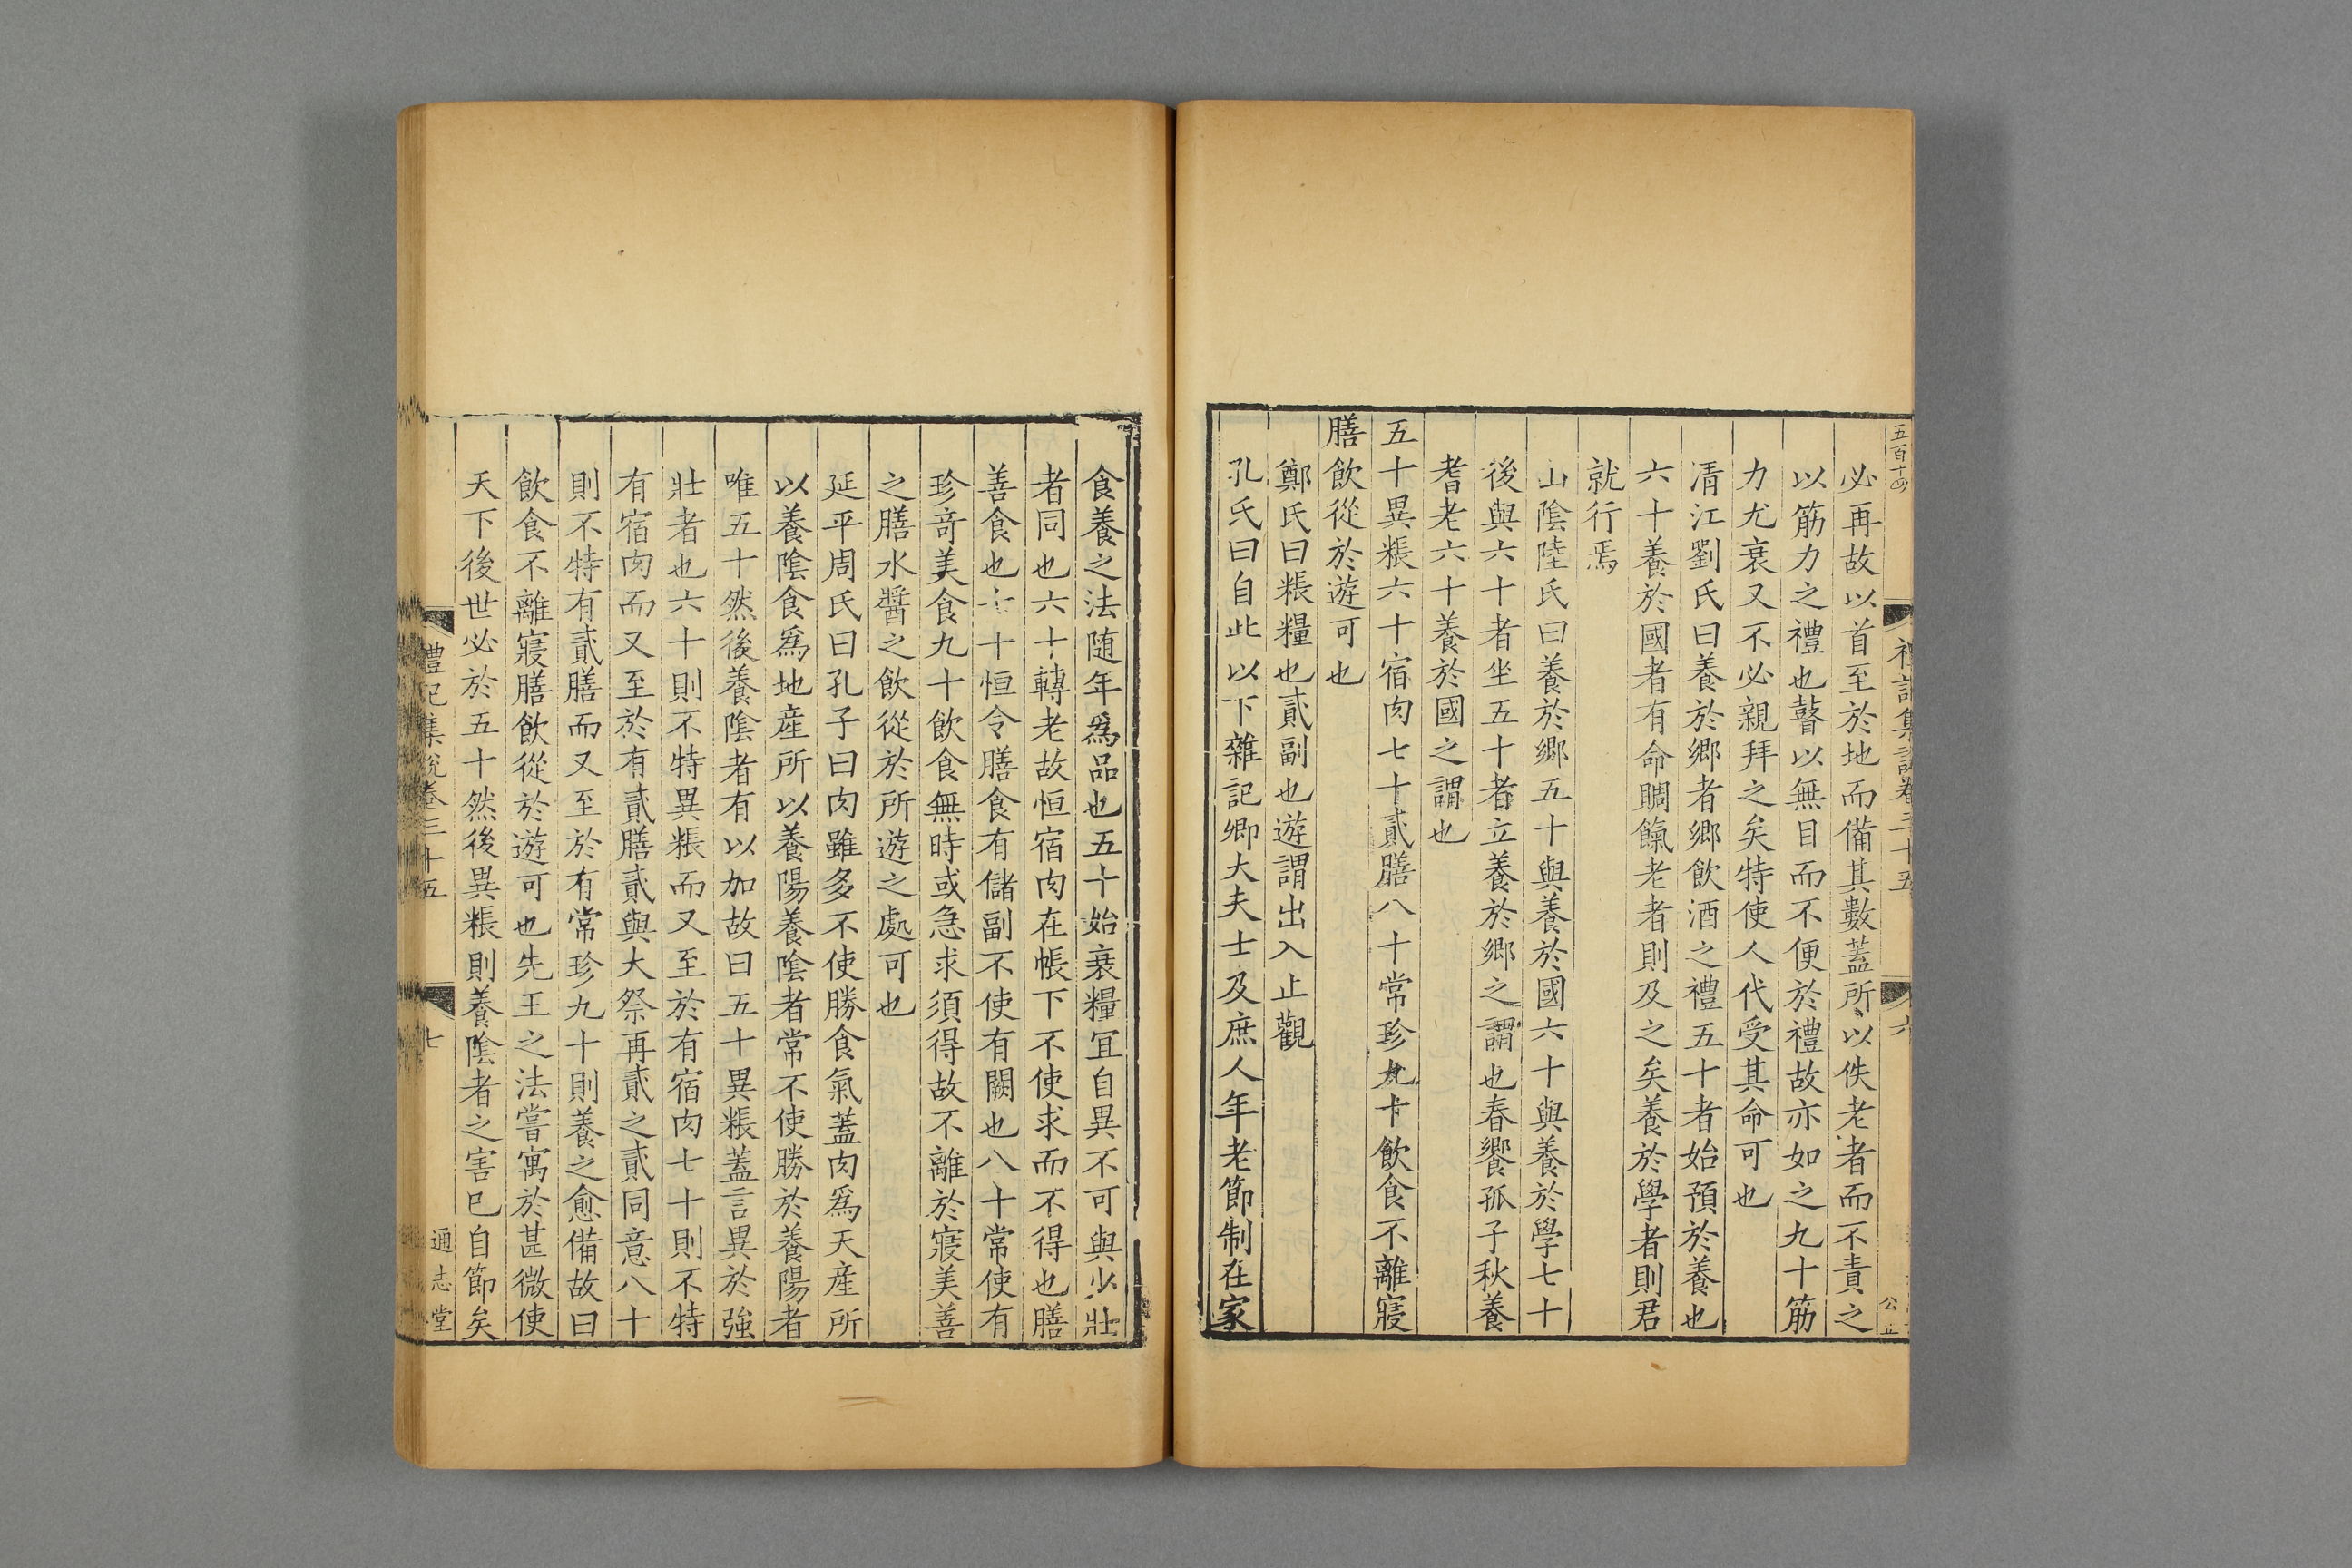 五百十四
禮記集說卷三十五
六
公
必再故以首至於地而備其數蓋所以佚老者而不責之
以筋力之禮也瞽以無目而不便於禮故亦如之九十筋
力尤衰又不必親拜之矣特使人代受其命可也
清江劉氏曰養於鄉者鄉飲酒之禮五十者始預於養也
六十養於國者有命賙餼老者則及之矣養於學者則君
就行焉
山陰陸氏曰養於鄉五十與養於國六十與養於學七十
後與六十者坐五十者立養於鄉之謂也春饗孤子秋養
耆老六十養於國之謂也
五十異粻六十宿肉七十貳膳八十常珍九十飲食不離寢
膳飲從於遊可也
鄭氏曰粻糧也貳副也遊謂出入止觀
孔氏曰自此以下雜記卿大夫士及庶人年老節制在家
食養之法隨年爲品也五十始衰糧宜自異不可與少壯
者同也六十轉老故恒宿肉在帳下不使求而不得也膳
善食也七十恒令膳食有儲副不使有闕也八十常使有
珍奇美食九十飲食無時或急求須得故不離於寢美善
之膳水醬之飲從於所遊之處可也
延平周氏曰孔子曰肉雖多不使勝食氣蓋肉爲天産所
以養陰食爲地産所以養陽養陰者常不使勝於養陽者
唯五十然後養陰者有以加故曰五十異粻蓋言異於強
壯者也六十則不特異粻而又至於有宿肉七十則不特
有宿肉而又至於有貳膳貳與大祭再貳之貳同意八十
則不特有貳膳而又至於有常珍九十則養之愈備故曰
飲食不離寢膳飲從於遊可也先王之法嘗寓於甚微使
天下後世必於五十然後異粻則養陰者之害已自節矣
禮記集說卷三十五
七
通志堂